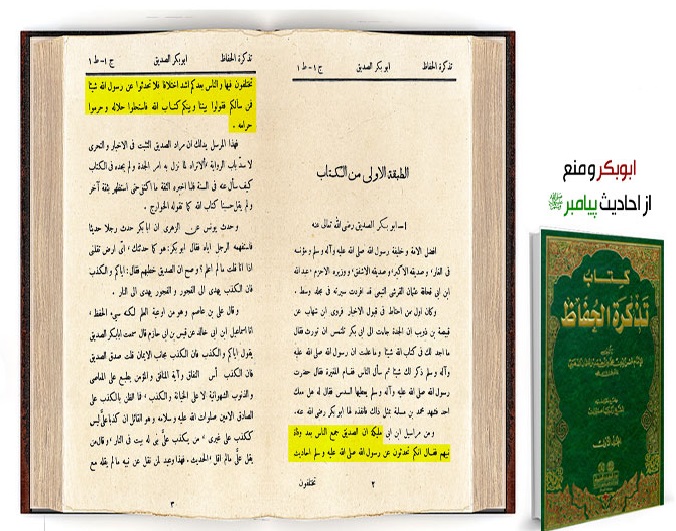 تذكرة الحفاظ ابوبكر الصديق ج ١ - ط ١
الطبقة الاولى من الكتاب
١ - ابو بكر الصديق رضى الله تعالى عنه
افضل الامة وخليفة رسول الله صلى الله عليه وآله وسلم ومؤنسه
فى الغار وصديقه الأكبر وصديقه الاشفق ووزيره الاحزم عبد الله
ابن ابى قحافة عثمان القرشى التيمى قد افردت سيرته فى مجلد وسط .
وكان اول من احتاط فى قبول الاخبار فروى ابن شهاب عن
قبيصة بن ذويب ان الجدة جاءت الى ابى بكر تلتمس ان تورث فقال
ما اجد لك فى كتاب الله شيئا وما علمت ان رسول الله صلى الله عليه
وآله وسلم ذكر لك شيئا ثم سأل الناس فقام المغيرة فقال حضرت
رسول الله صلى الله عليه وآله وسلم يعطيها السدس فقال له هل معك
احد فشهد محمد بن مسلمة بمثل ذلك فانفذه لها ابو بكر رضى الله عنه.
ومن مراسيل ابن ابى مليكة ان الصديق جمع الناس بعد وفاة
نبيهم فقال انكم تحدثون عن رسول الله صلى الله عليه وسلم احاديث
٢ تختلفون
تذكرة الحفاظ ابوبكر الصديق ج ١ - ط ١
تختلفون فيها والناس بعدكم اشد اختلافا فلا تحدثوا عن رسول الله شيئا
فمن سألكم فقولوا بيننا وبينكم كتاب الله فاستحلوا حلاله وحرموا
حرامه .
فهذا المرسل يدلك ان مراد الصديق التثبت فى الاخبار والتحرى
لا سد باب الرواية ألا تراه لما نزل به امر الجدة ولم يجده فى الكتاب
كيف سأل عنه فى السنة فلما اخبره الثقة ما اكتفى حتى استظهر بثقة آخر
ولم يقل حسبنا كتاب الله كما تقوله الخوارج .
وحدث يونس عن الزهرى ان ابا بكر حدث رجلا حديثا
فاستفهمه الرجل اياه فقال ابو بكر: هو كما حدثتك، اى ارض تقلنى
اذا انا قلت ما لم اعلم؟ وصح ان الصديق خطبهم فقال: اياكم والكذب
فان الكذب يهدى الى الفجور والفجور يهدى الى النار .
وقال على بن عاصم وهو من اوعية العلم لكنه سيىء الحفظ:
انا اسماعيل ابن ابى خالد عن قيس بن ابى حازم قال سمعت ابا بكر الصديق
يقول اياكم والكذب فان الكذب مجانب الايمان قلت صدق الصديق
فان الكذب أس النفاق وآية المنافق والمؤمن يطبع على المعاصى
والذنوب الشهوانية لا على الخيانة والكذب، فما الظن بالكذب على
الصادق الامين صلوات الله عليه وسلامه وهو القائل ان كذبا على ليس
ككذب على غيرى، من يكذب على بنى له بيت فى النار، وقال من
يقل على مالم اقل، الحديث. فهذا وعيد لمن نقل عن نبيه ما لم يقله مع
٣
ابوبكر و منع
از احادیث پیامبر ﷺ
كتاب
تذكرة الحفاظ